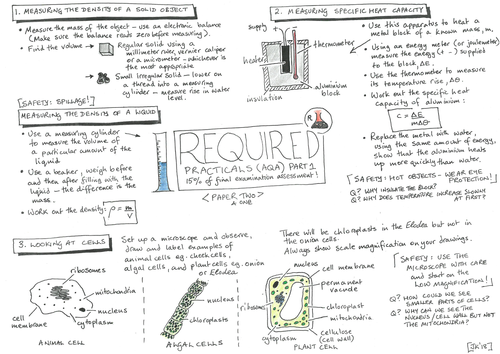 1. MEASURING THE DENSITY OF A SOLID OBJECT
• Measure the mass of the object - use an electronic balance
(Make sure the balance reads zero before measuring).
• Find the volume
Regular solid using a
millimeter ruler, vernier caliper
or a micrometer - whichever is
the most appropriate
Small irregular solid - lower on
a thread into a measuring
cylinder - measure rise in water
level.
[SAFETY: SPILLAGE!]
MEASURING THE DENSITY OF A LIQUID
• Use a measuring cylinder
to measure the volume of
a particular amount of the
liquid
• Use a beaker, weigh before
and then after filling with the
liquid - the difference is the
mass.
• Work out the density:
ρ = m/V
REQUIRED
PRACTICALS (AQA) PART 1
15% of final examination assessment!
< PAPER TWO >
R
2. MEASURING SPECIFIC HEAT CAPACITY
supply
thermometer
heater
aluminium
block
insulation
• Use this apparatus to heat a
metal block of a known mass, m,
• Using an energy meter (or joulemeter)
measure the energy (+ -) supplied
to the block, ΔE.
• Use the thermometer to measure
its temperature rise, Δθ.
• Work out the specific heat
capacity of aluminium:
c = ΔE
mΔθ
• Replace the metal with water,
using the same amount of energy,
show that the aluminium heats
up more quickly than water.
[SAFETY: HOT OBJECTS - WEAR EYE
PROTECTION!]
Q? WHY INSULATE THE BLOCK?
Q? WHY DOES TEMPERATURE INCREASE SLOWLY
AT FIRST?
3. LOOKING AT CELLS
Set up a microscope and observe,
draw and label examples of
animal cells eg. cheek cells,
algal cells, and plant cells eg. onion
or Elodea
There will be chloroplasts in the Elodea but not in
the onion cells.
Always show scale magnification on your drawings.
ribosomes
mitochondria
nucleus
cytoplasm
cell
membrane
ANIMAL CELL
nucleus
chloroplasts
ALGAL CELLS
nucleus
cell membrane
permanent
vacuole
ribosomes
chloroplast
mitochondria
cytoplasm
cellulose
(cell wall)
PLANT CELL
[SAFETY: USE THE
MICROSCOPE WITH CARE
and start on the
LOW MAGNIFICATION!]
Q? HOW COULD WE SEE
SMALLER PARTS OF CELLS?
Q? WHY CAN WE SEE THE
NUCLEUS / CELL WALL BUT NOT
THE MITOCHONDRIA?
[JK'18]